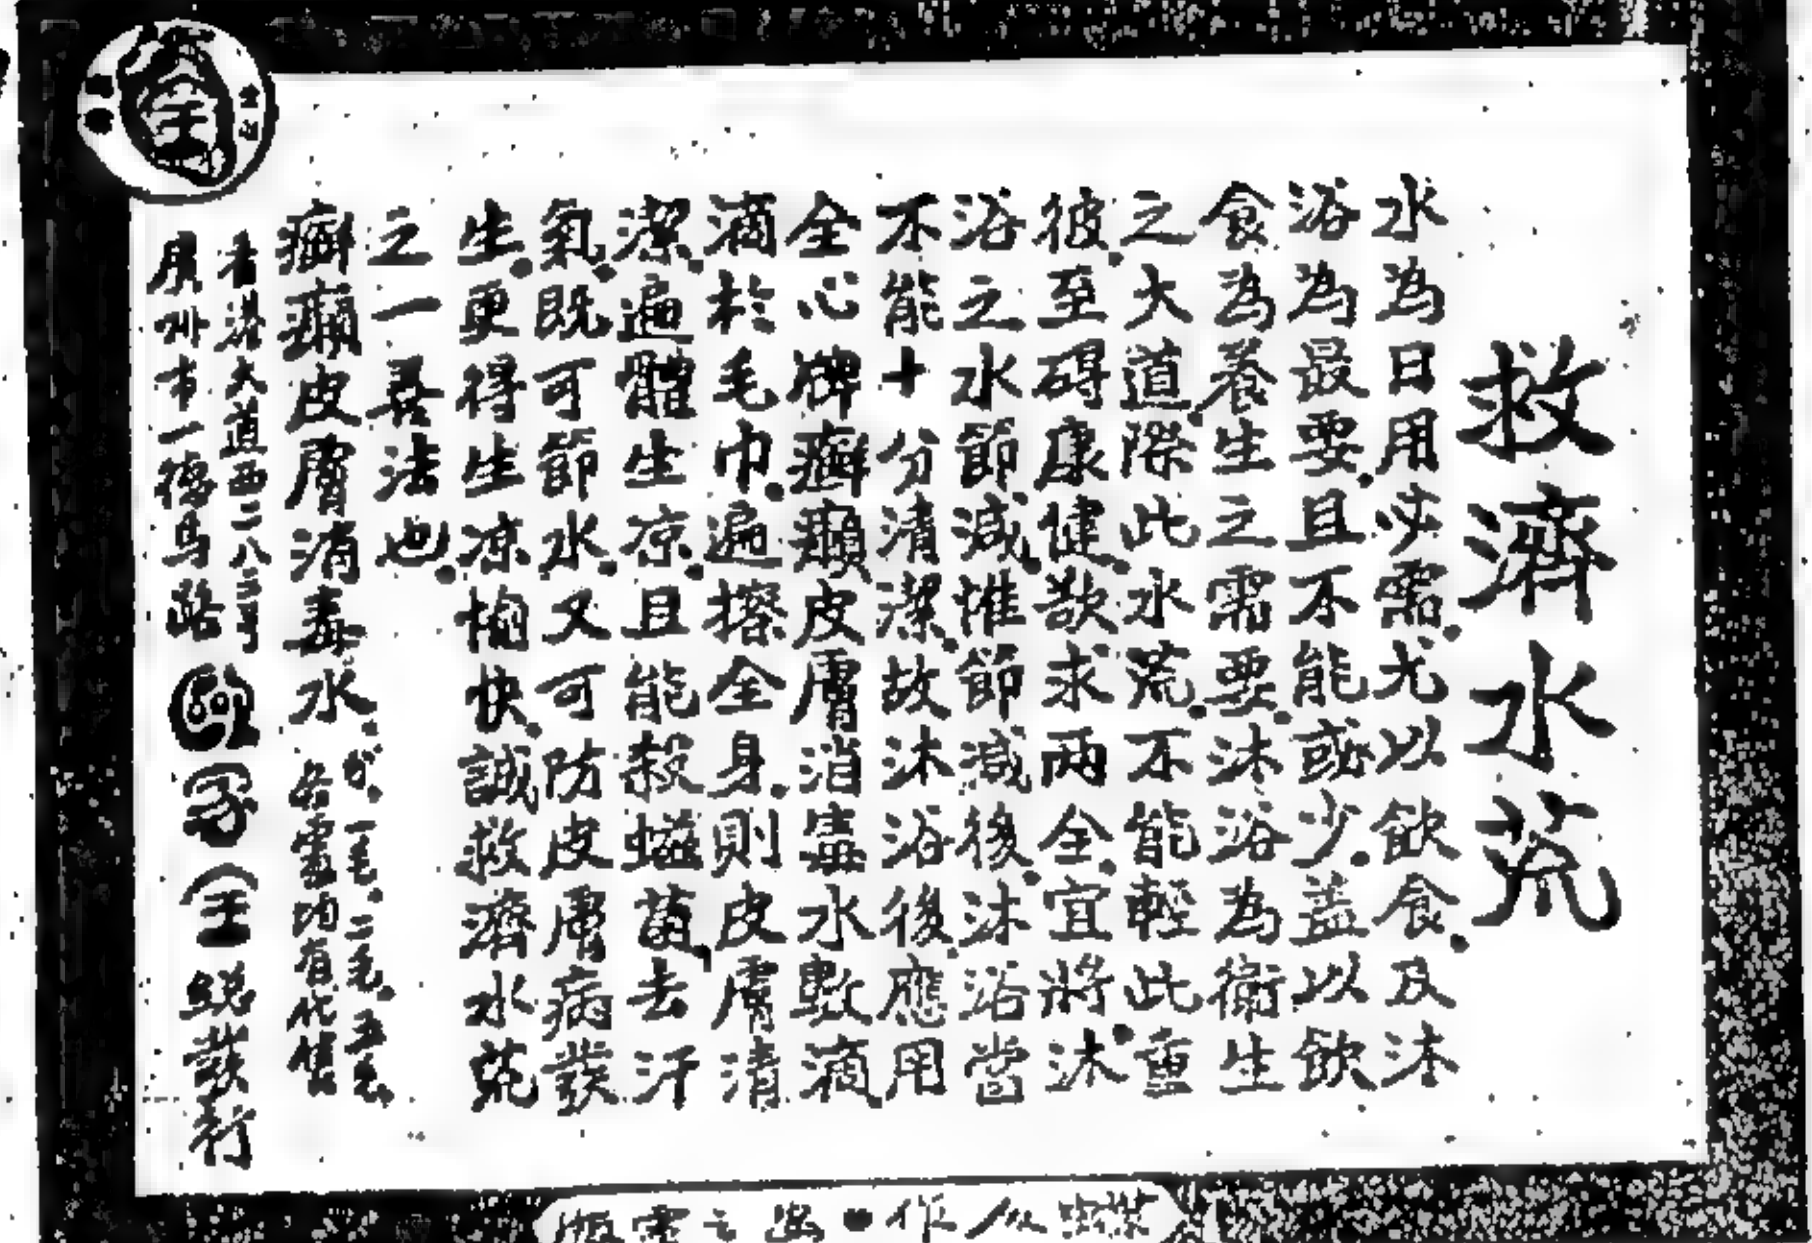 救濟水荒
水為日用必需.尤以飲食.及沐
浴為最要.且不能或少.蓋以飲
食為養生之需要.沐浴為衛生
之大道.際此水荒.不能輕此重
彼.至碍康健.欲求兩全.宜將沐
浴之水節減.惟節減後.沐浴當
不能十分清潔.故沐浴後.應用
全心牌癬癩皮膚消毒水數滴
滴於毛巾.遍擦全身.則皮膚清
潔.遍體生凉.且能殺蟲菌.去汗
氣.既可節水.又可防皮膚病發
生.更得生凉愉快.誠救濟水荒
之一善法也.
癬癩皮膚消毒水.
一毛.二毛.五毛.
各電均有代售
香港大道西二八三號
廣州市一德馬路
總發行